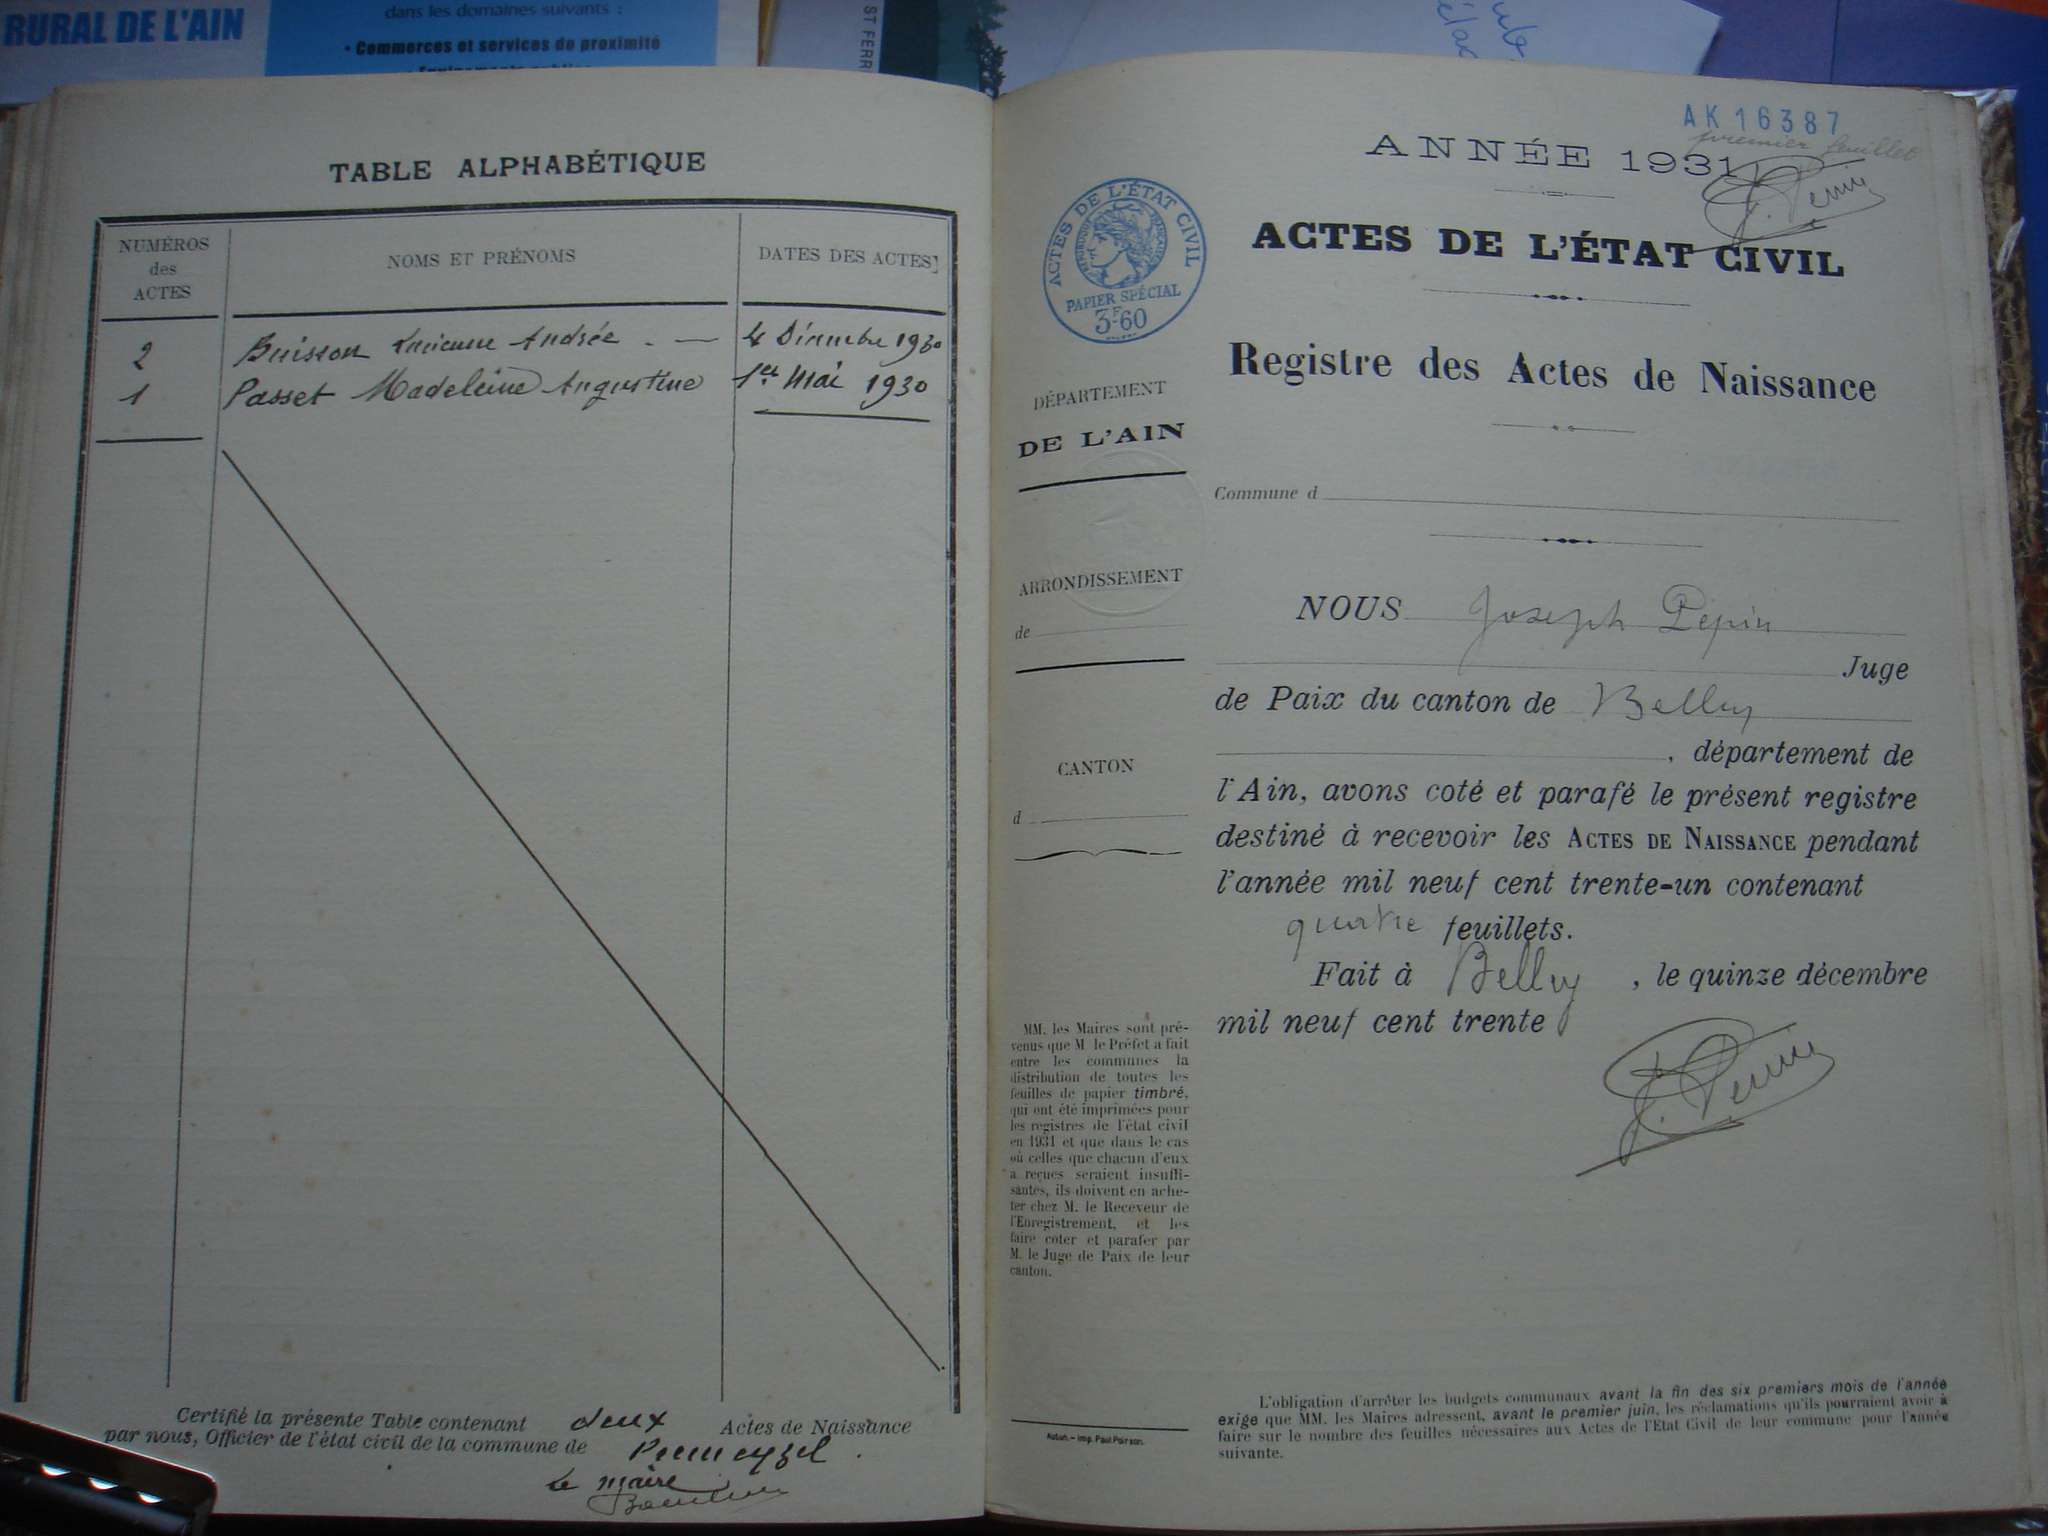 RURAL DE L'AIN
dans les domaines suivants :
• Commerces et services de proximité
ST FERR
TABLE ALPHABÉTIQUE
NUMÉROS des ACTES
NOMS ET PRÉNOMS
DATES DES ACTES
2 Buisson Lucienne Andrée 4 Décembre 1930
1 Passet Madeleine Augustine 1er Mai 1930
Certifié la présente Table contenant deux Actes de Naissance
par nous, Officier de l'état civil de la commune de Peumeyzel.
Le maire
AK 16387
premier feuillet
ANNÉE 1931
ACTES DE L'ÉTAT CIVIL
RÉPUBLIQUE FRANÇAISE
PAPIER SPÉCIAL
3F60
ACTES DE L'ÉTAT CIVIL
Registre des Actes de Naissance
DÉPARTEMENT
DE L'AIN
Commune d
ARRONDISSEMENT
de
CANTON
d
NOUS Joseph Pépin
Juge
de Paix du canton de Belley
, département de
l'Ain, avons coté et parafé le présent registre
destiné à recevoir les ACTES DE NAISSANCE pendant
l'année mil neuf cent trente-un contenant
quatre feuillets.
Fait à Belley, le quinze décembre
mil neuf cent trente
MM. les Maires sont pré-
venus que M. le Préfet a fait
entre les communes la
distribution de toutes les
feuilles de papier timbré,
qui ont été imprimées pour
les registres de l'état civil
en 1931 et que dans le cas
où celles que chacun d'eux
a reçues seraient insuffi-
santes, ils doivent en ache-
ter chez M. le Receveur de
l'Enregistrement, et les
faire coter et parafer par
M. le Juge de Paix de leur
canton.
L'obligation d'arrêter les budgets communaux avant la fin des six premiers mois de l'année
exige que MM. les Maires adressent, avant le premier juin, les réclamations qu'ils pourraient avoir à
faire sur le nombre des feuilles nécessaires aux Actes de l'Etat Civil de leur commune pour l'année
suivante.